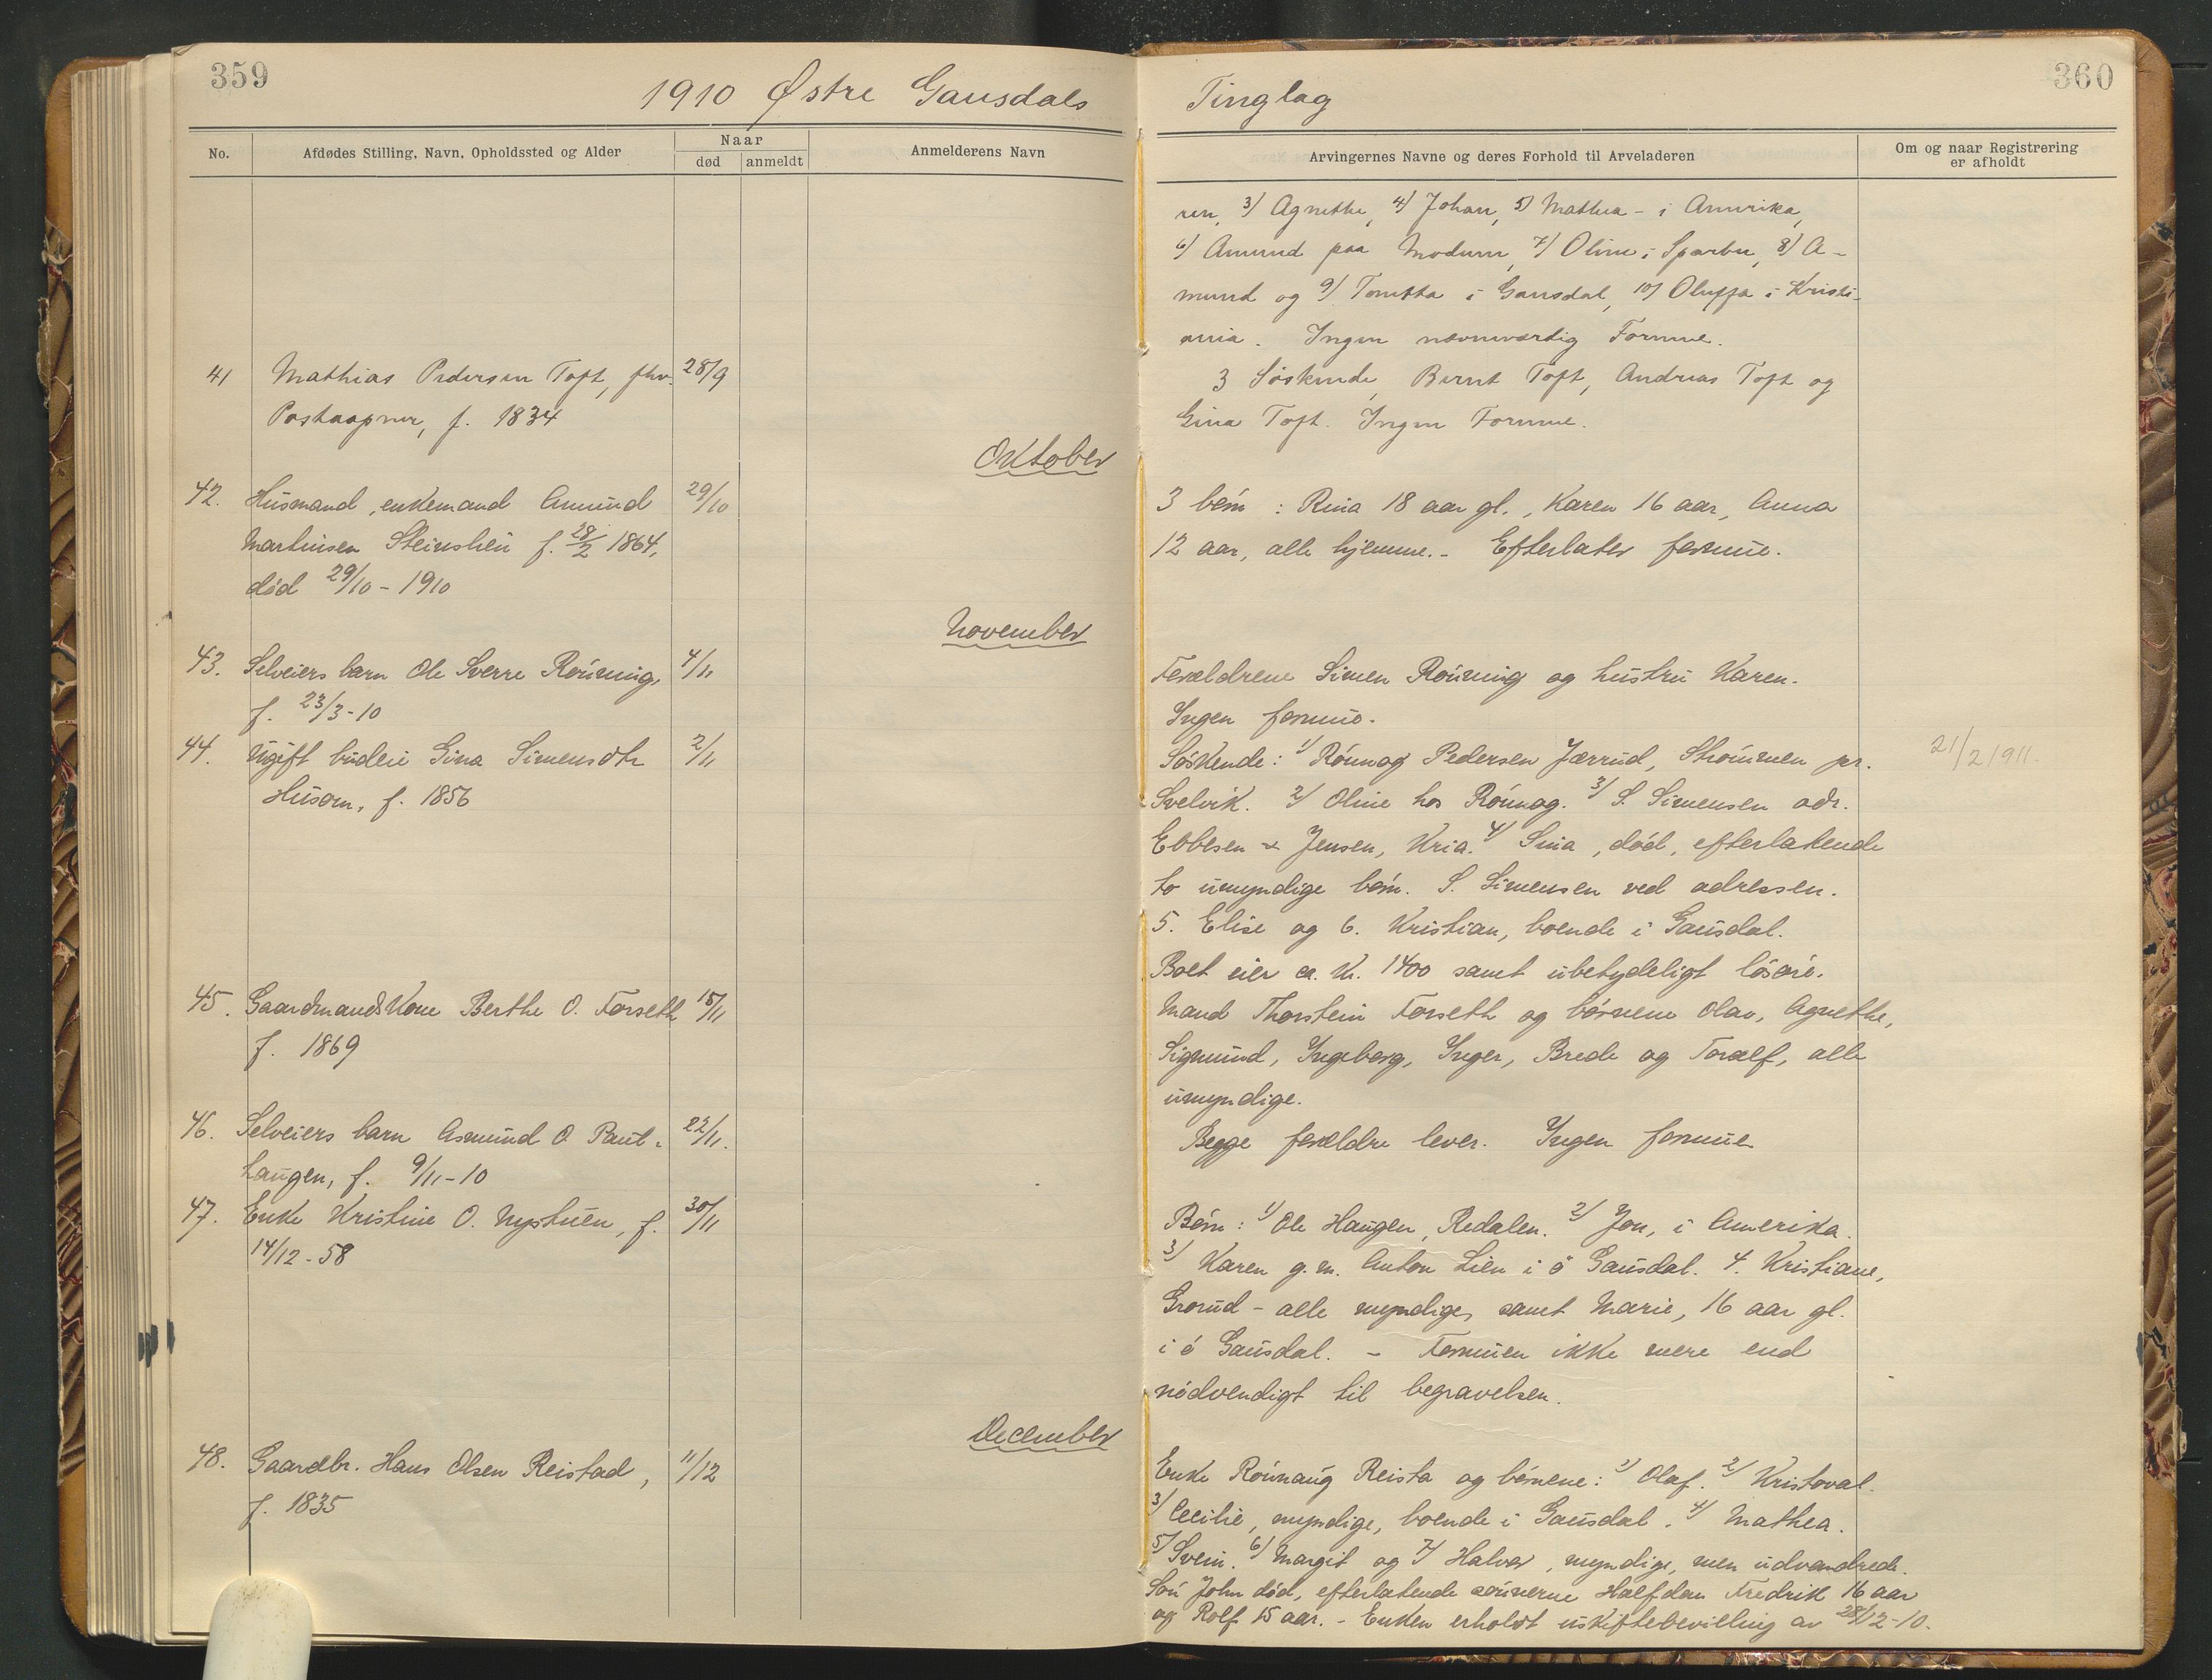 359
1910 Østre Gausdals
Tinglag
360
No.
Afdødes Stilling, Navn, Opholdssted og Alder
Naar
død
anmeldt
Anmelderens Navn
Arvingernes Navne og deres Forhold til Arveladeren
Om og naar Registrering
er afholdt
ren, 3) Agnethe, 4) Johan, 5) Mathea - i Amerika,
6) Amund paa Modum, 7) Oline i Sparbu, 8) A-
mund og 9) Tonetta i Gausdal, 10) Oluffa i Kristi-
ania. Ingen nævneværdig Formue.
41 Mathias Pedersen Toft, fhv. 28/9
Postaapner, f. 1834
3 Søskende, Bernt Toft, Andreas Toft og
Gina Toft. Ingen Formue.
Oktober
42. Husmand, enkemand Amund 29/10
Martinsen Steinslien f. 28/2 1864,
død 29/10 - 1910
3 børn : Rina 18 aar gl., Karen 16 aar, Anna
12 aar, alle hjemme. - Efterlater formue.
November
43. Selveiers barn Ole Sverre Rønning, 4/11
f. 23/3-10
Forældrene Simen Rønning og hustru Karen.
Ingen formue.
44. Ugift budeie Gina Simensdtr 2/11
Husom, f. 1856
Søskende: 1/ Rønnog Pedersen Jærrud, Strømmen pr. 21/2 1911.
Svelvik. 2/ Oline hos Rønnog. 3/ S. Simensen adr.
Ebbesen & Jensen, Kria. 4/ Sina, død, efterlatende
to umyndige børn. S. Simensen ved adressen.
5. Elise og 6. Kristian, boende i Gausdal.
Boet eier ca. kr. 1400 samt ubetydeligt løsøre.
45. Gaardmandskone Berthe O. Forseth 15/11
f. 1869
Mand Thorstein Forseth og børnene Olav, Agnethe,
Sigmund, Ingeborg, Inger, Brede og Toralf, alle
umyndige.
46. Selveiers barn Asmund O. Paut- 22/11.
haugen, f. 9/11-10
Begge forældre lever. Ingen formue
47. Enke Kristine O. Nystuen, f. 30/11
14/12-58
Børn: 1/ Ole Haugen, Redalen. 2/ Jon, i Amerika.
3/ Karen g.m. Anton Lien i ø Gausdal. 4. Kristiane,
Grorud - alle myndige, samt Marie, 16 aar gl.
i ø Gausdal. - Formuen ikke mere end
nødvendigt til begravelsen.
December
48. Gaardbr. Hans Olsen Reistad, 11/12
f. 1835
Enke Rønnaug Reista og børnene: 1/ Olaf. 2/ Kristoval.
3/ Cecilie, myndige, boende i Gausdal. 4/ Mathea.
5/ Svein. 6/ Margit og 7/ Halvor, myndige, men udvandrede.
Søn John død, efterlatende sønnerne Halfdan Fredrik 16 aar
og Rolf 15 aar. - Enken erholdt uskiftebevilling av 28/12-10.